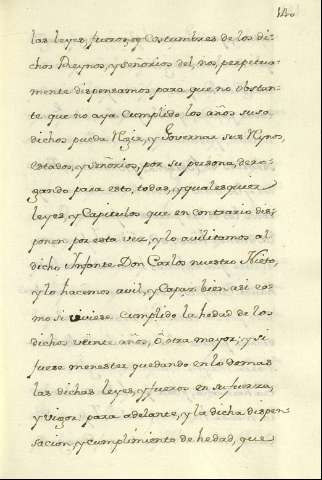 las leyes, fueros, y Costumbres de los di-
chos Reynos, y señorios del, nos, perpetua-
mente dispensamos para que no obstan-
te que no aya Cumplido los años suso
dichos pueda Regir, y Governar sus Rynos,
estados, y señorios, por su persona, dero-
gando para esto, todas, y qualesquier
leyes, y Capitulos que en contrario dis-
ponen por esta vez, y lo avilitamos al
dicho Infante Don Carlos nuestro Nieto,
y lo hacemos avil, y Capaz bien asi co-
mo si uviese Cumplido la hedad de los
dichos veinte años, ô otra mayor; y si
fuese menester quedando en lo demas
las dichas leyes, y fueros en su fuerza,
y vigor para adelante, y la dicha dispen
sacion, y cumplimiento de hedad, que